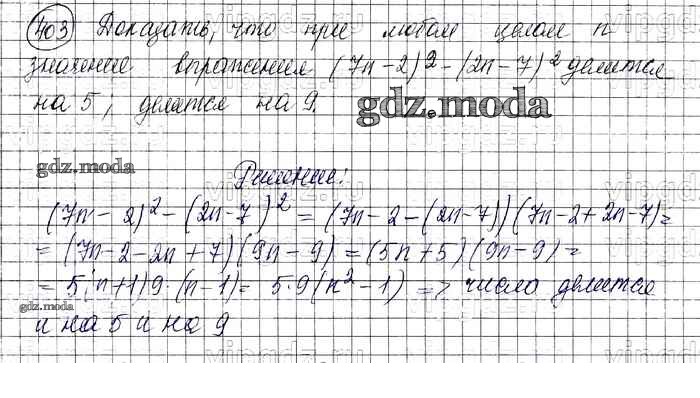 403 Доказать, что при любом целом n
значение выражения (7n-2)2-(2n-7)2 делится
на 5, делится на 9.
gdz.moda
gdz.moda
Решение:
(7n-2)²-(2n-7)² = (7n-2-(2n-7))(7n-2+2n-7)=
= (7n-2-2n+7)(9n-9) = (5n+5)(9n-9)=
= 5(n+1)9·(n-1)= 5·9(n²-1) => число делится
gdz.moda
и на 5 и на 9